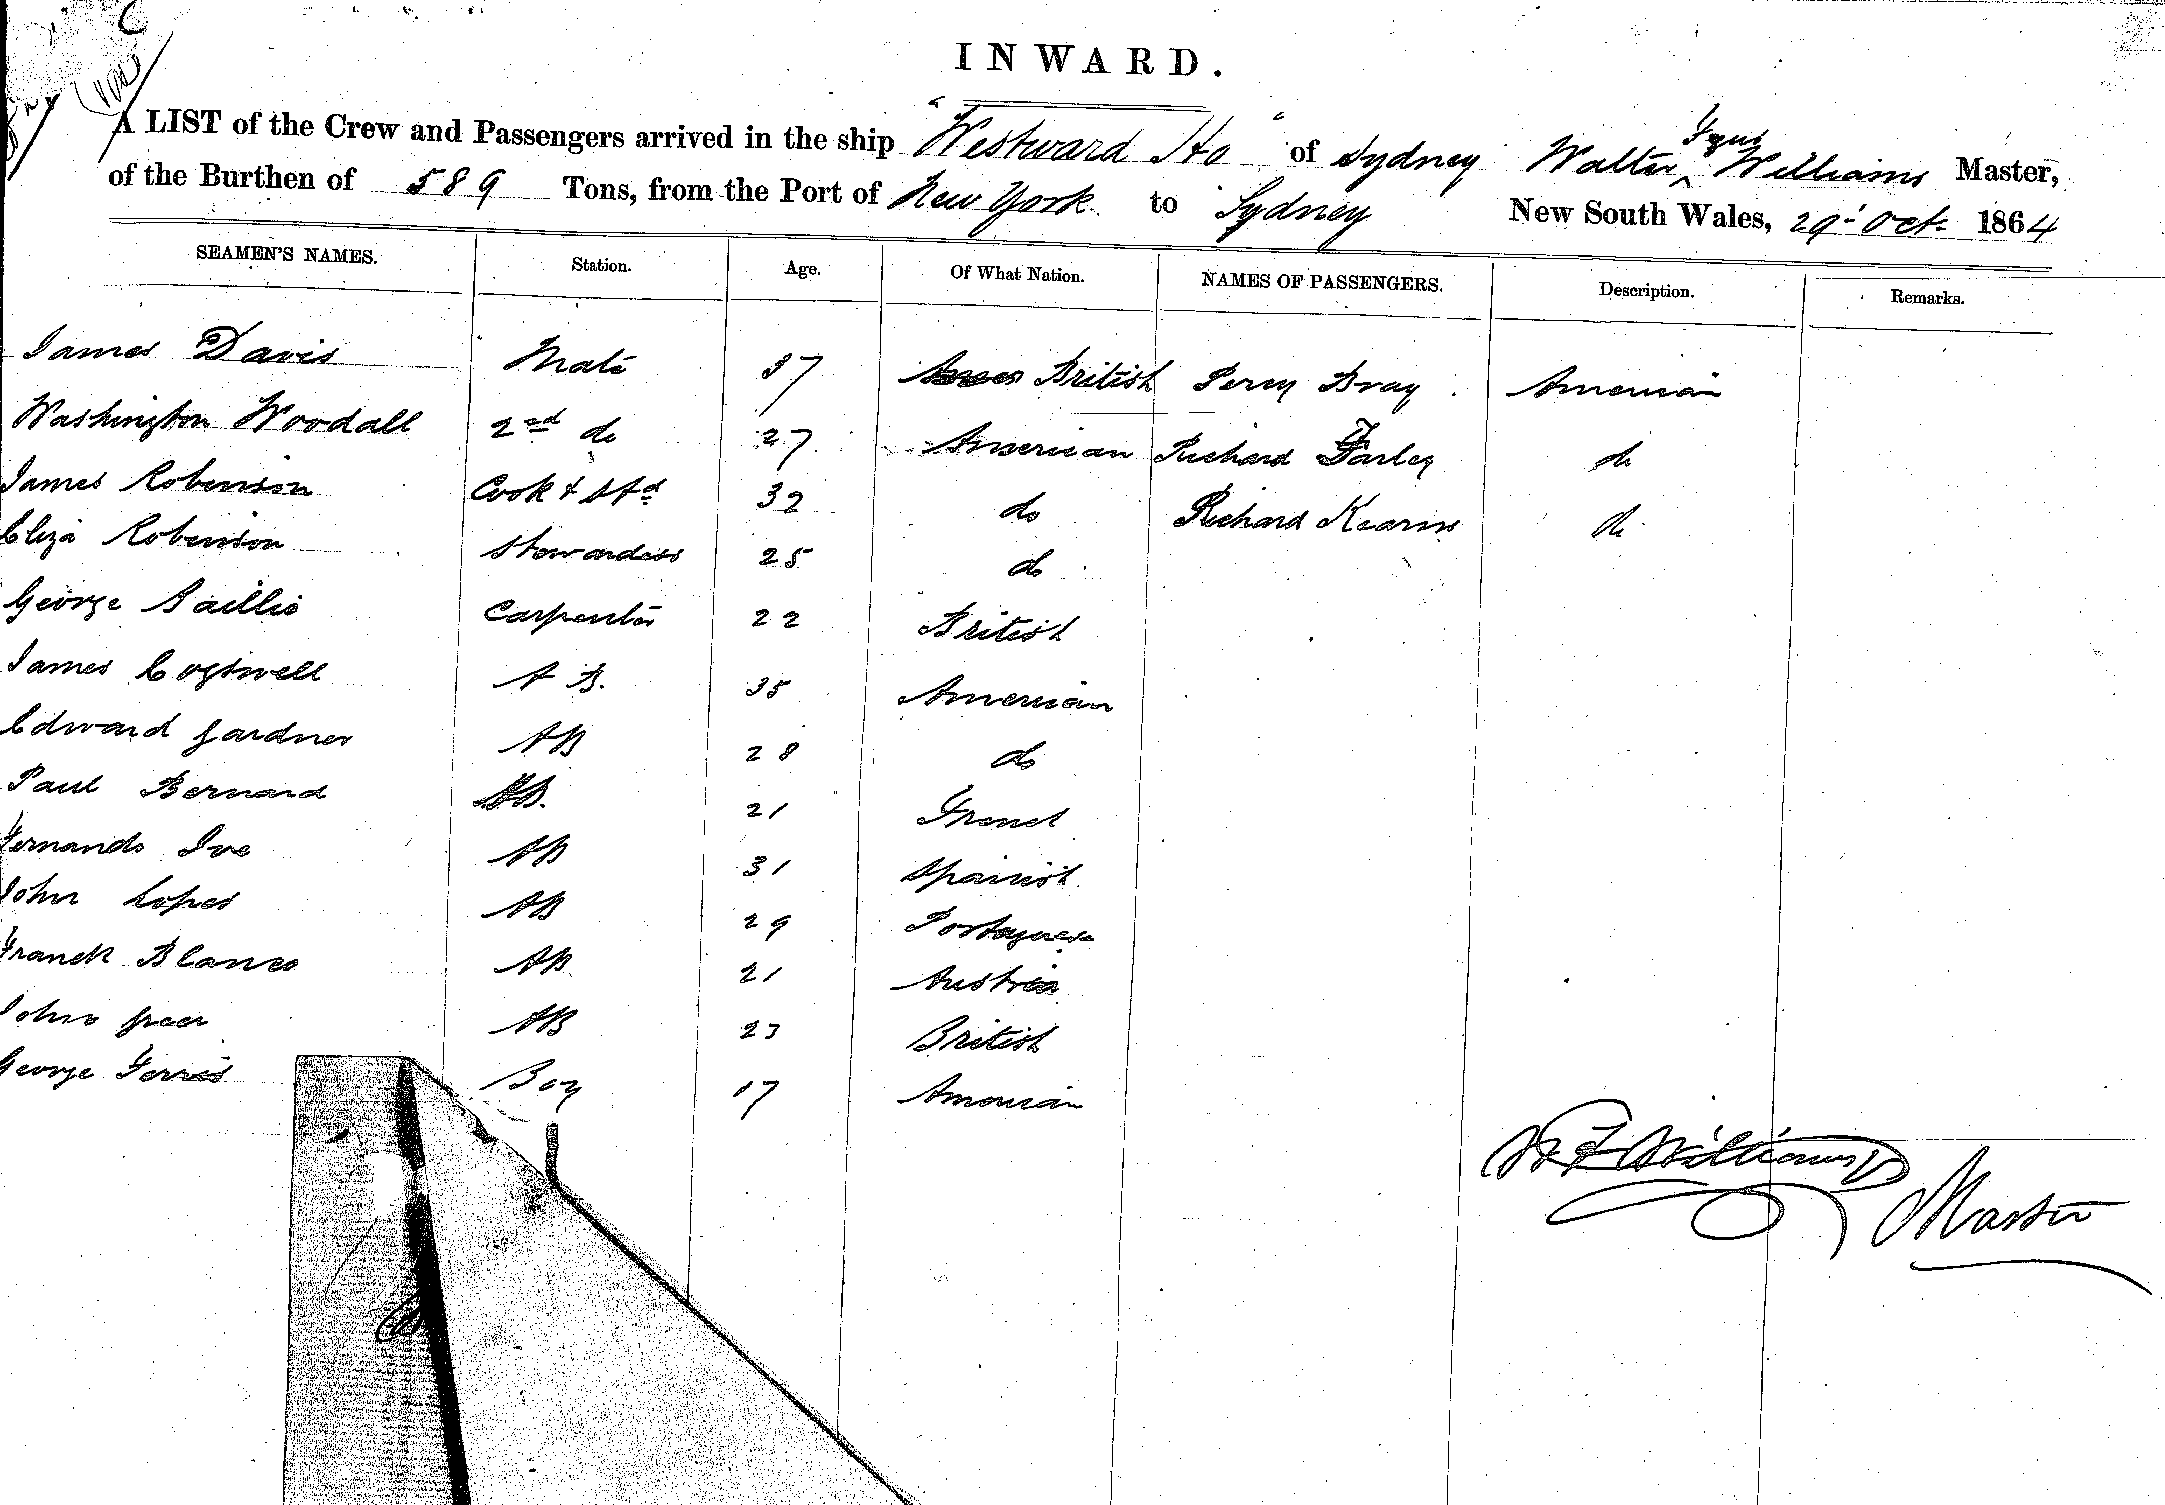 INWARD.
A LIST of the Crew and Passengers arrived in the ship "Westward Ho" of Sydney Walter Williams Master,
of the Burthen of 589 Tons, from the Port of New York to Sydney New South Wales, 29 Oct. 1864
SEAMEN'S NAMES. Station. Age. Of What Nation. NAMES OF PASSENGERS. Description. Remarks.
James Davis Mate 37 British Percy Bray American
Washington Woodall 2nd do 27 American Richard Farley do
James Robinson Cook & Std 32 do Richard Kearns do
Eliza Robinson Stewardess 25 do
George Baillie Carpenter 22 British
James Cogswell A B. 35 American
Edward Gardner AB 28 do
Paul Bernard AB. 21 French
Fernando Ive AB 31 Spanish
John Lopes AB 29 Portuguese
Franck Blanco AB 21 Austria
John AB 23 British
George Ferris Boy 17 American
W F Williams
Master